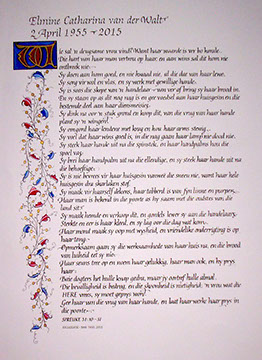 Elmine Catharina van der Walt
2 April 1955 - 2015
Wie sal 'n deugsame vrou vind? Want haar waarde is ver bo korale.
Die hart van haar man vertrou op haar, en aan wins sal dit hom nie
ontbreek nie.
Sy doen aan hom goed, en nie kwaad nie, al die dae van haar lewe.
Sy sorg vir wol en vlas, en sy werk met gewillige hande.
Sy is soos die skepe van 'n handelaar - van ver af bring sy haar brood in.
En sy staan op as dit nog nag is en gee voedsel aan haar huisgesin en die
bestemde deel aan haar diensmeisies.
Sy dink na oor 'n stuk grond en koop dit, van die vrug van haar hande
plant sy 'n wingerd.
Sy omgord haar lendene met krag en hou haar arms stewig.
Sy voel dat haar wins goed is, in die nag gaan haar lamp nie dood nie.
Sy steek haar hande uit na die spinstok, en haar handpalms hou die
spoel vas.
Sy brei haar handpalm uit na die ellendige, en sy steek haar hande uit na
die behoeftige.
Sy is nie bevrees vir haar huisgesin vanweë die sneeu nie, want haar hele
huisgesin dra skarlaken stof.
Sy maak vir haarself dekens, haar tabberd is van fyn linne en purper.
Haar man is bekend in die poorte as hy saam met die oudstes van die
land sit.
Sy maak hemde en verkoop dit, en gordels lewer sy aan die handelaars.
Sterkte en eer is haar kleed, en sy lag oor die dag wat kom.
Haar mond maak sy oop met wysheid, en vriendelike onderrigting is op
haar tong.
Opmerksaam gaan sy die werksaamhede van haar huis na, en die brood
van luiheid eet sy nie.
Haar seuns tree op en noem haar gelukkig, haar man ook, en hy prys
haar:
Baie dogters het hulle knap gedra, maar jy oortref hulle almal.
Die bevalligheid is bedrog, en die skoonheid is nietigheid, 'n vrou wat die
HERE vrees, sy moet geprys word.
Gee haar van die vrug van haar hande, en laat haar werke haar prys in
die poorte.
SPREUKE 31: 10 - 31